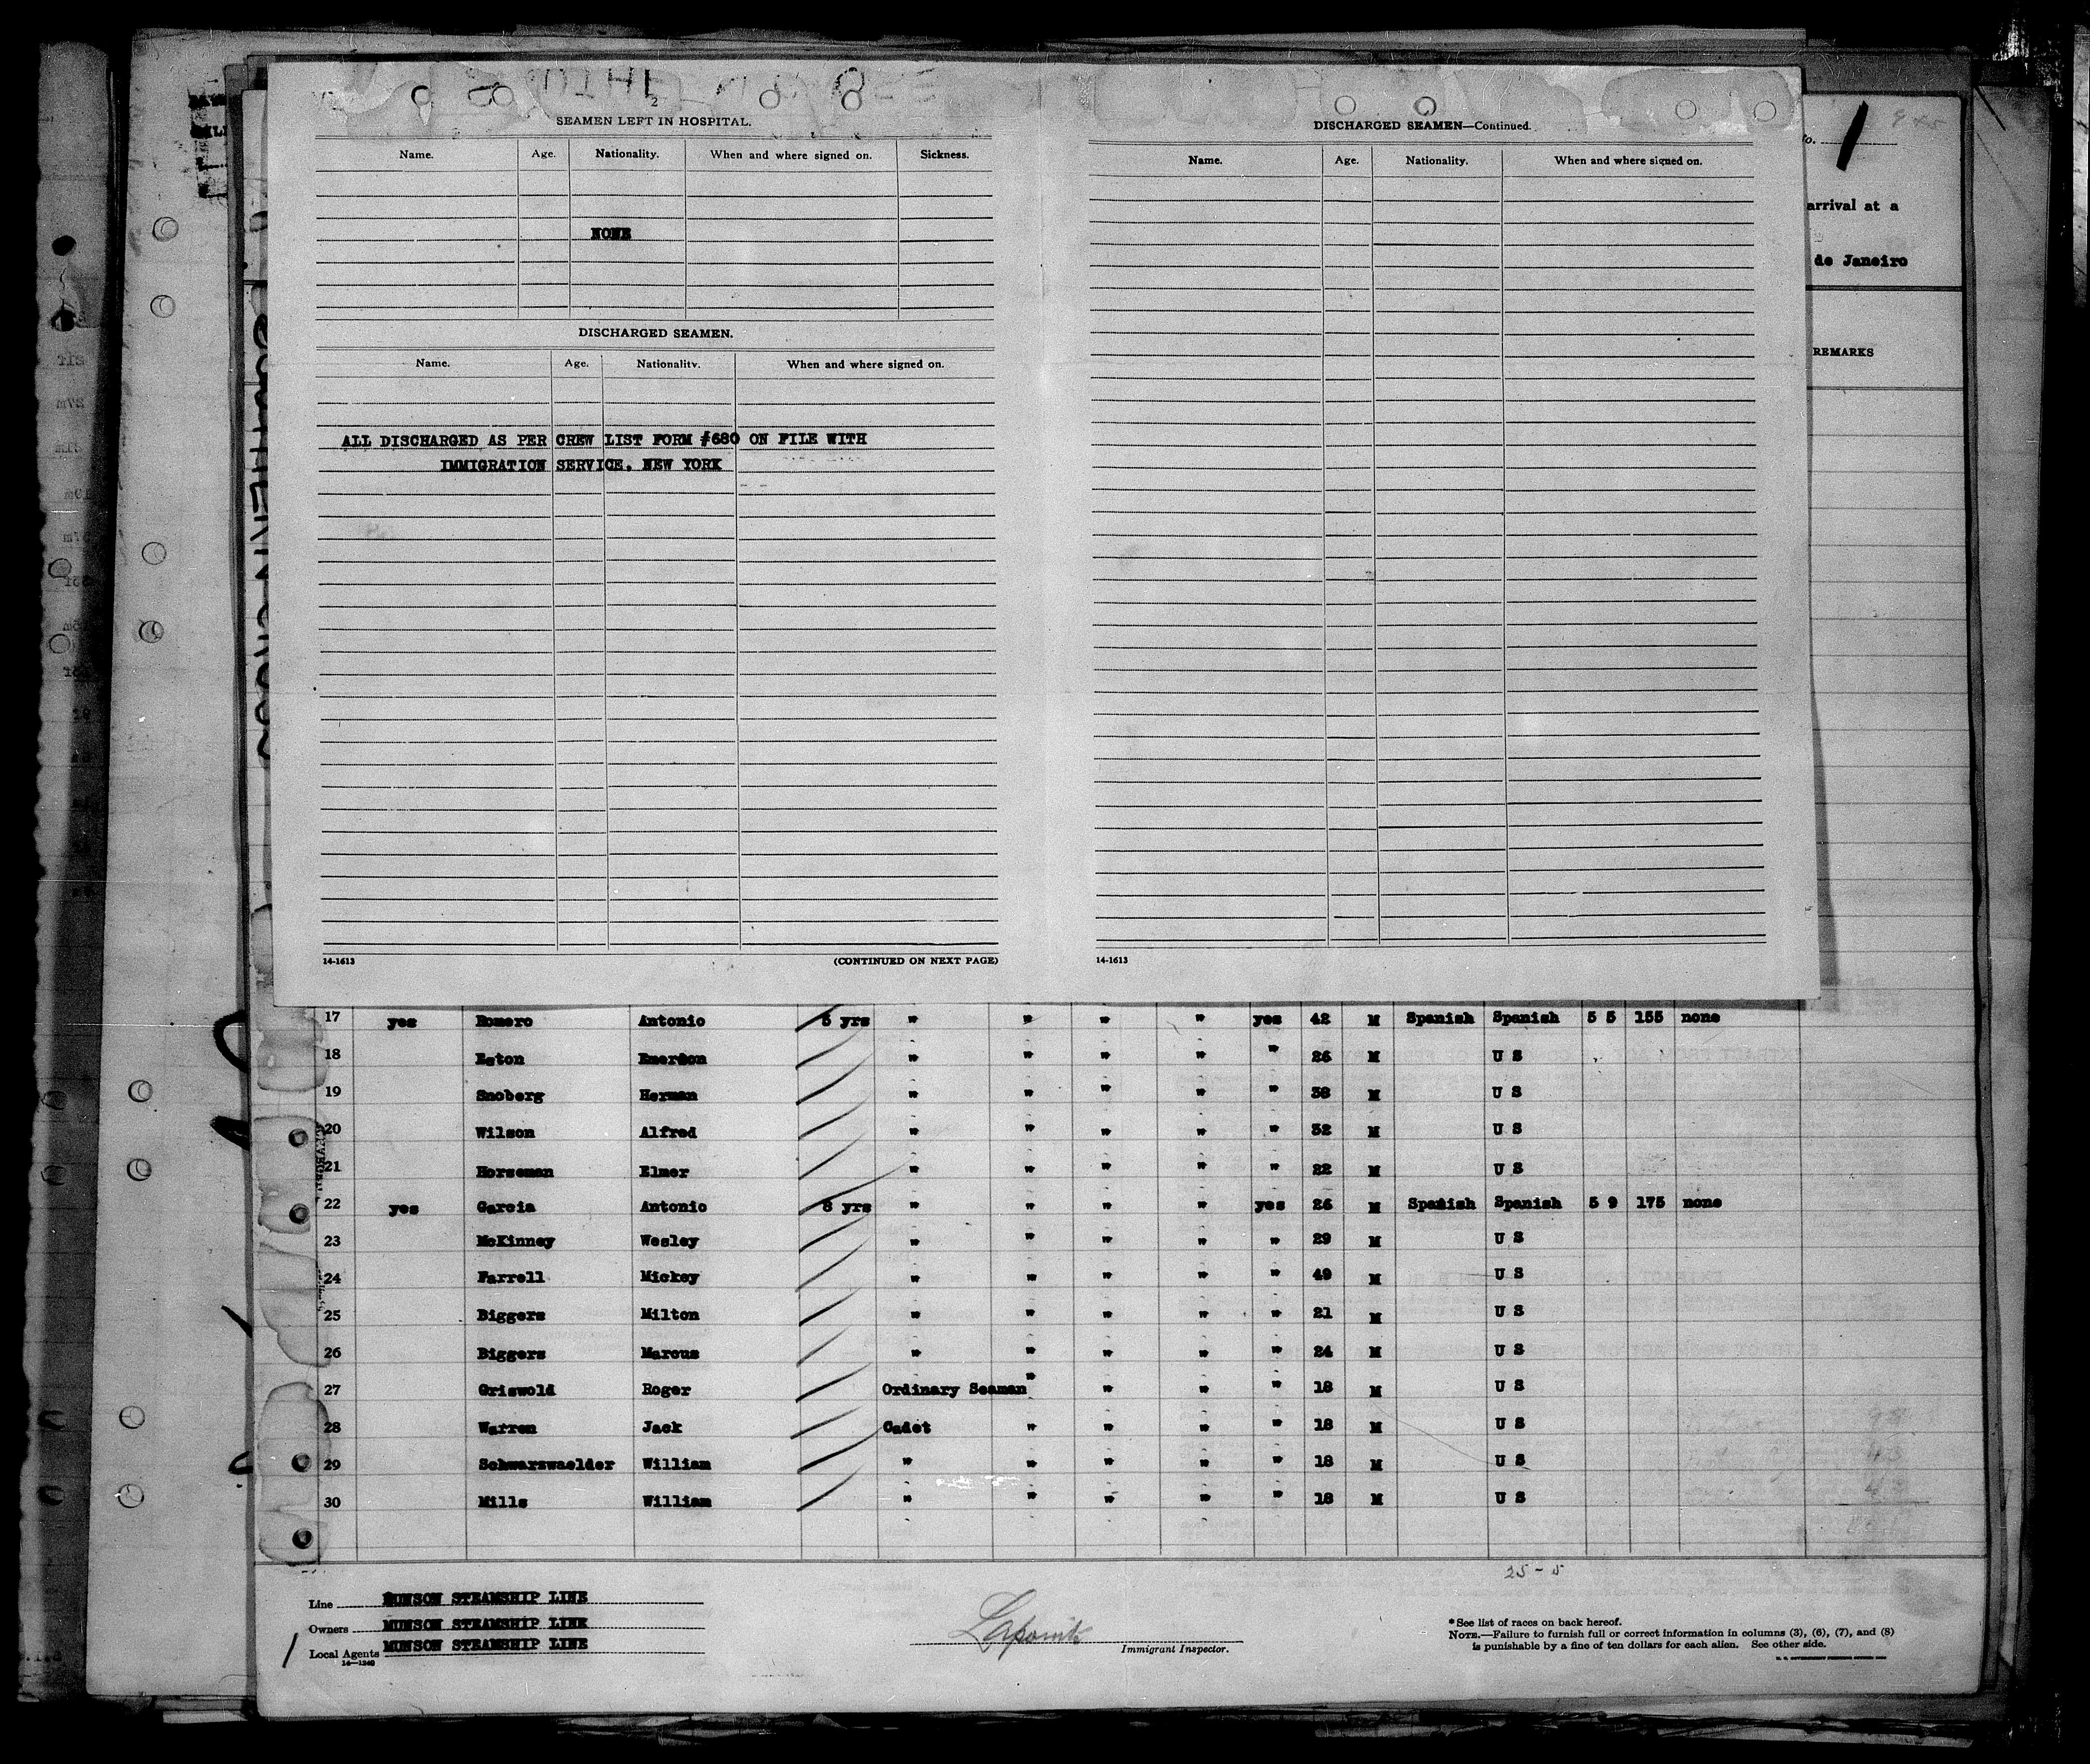 2
SEAMEN LEFT IN HOSPITAL.
Name. Age. Nationality. When and where signed on. Sickness.
NONE
DISCHARGED SEAMEN.
Name. Age. Nationality. When and where signed on.
ALL DISCHARGED AS PER CREW LIST FORM #680 ON FILE WITH
IMMIGRATION SERVICE. NEW YORK
14-1613 (CONTINUED ON NEXT PAGE)
DISCHARGED SEAMEN—Continued.
Name. Age. Nationality. When and where signed on.
14-1613
1
arrival at a
de Janeiro
REMARKS
SOUTHERN CROSS
17 yes Romero Antonio 5 yrs " " " " yes 42 M Spanish Spanish 5 5 155 none
18 Eston Emerson " " " " " 26 M U S
19 Snoberg Herman " " " " " 38 M U S
20 Wilson Alfred " " " " " 32 M U S
21 Horseman Elmer " " " " " 22 M U S
22 yes Garcia Antonio 8 yrs " " " " yes 26 M Spanish Spanish 5 9 175 none
23 McKinney Wesley " " " " " 29 M U S
24 Farrell Mickey " " " " " 49 M U S
25 Biggers Milton " " " " " 21 M U S
26 Biggers Marcus " " " " " 24 M U S
27 Griswold Roger Ordinary Seaman " " " " 18 M U S
28 Warren Jack Cadet " " " " 18 M U S
29 Schwarzwaelder William " " " " " 18 M U S
30 Mills William " " " " " 18 M U S
25 - 5
Line MUNSON STEAMSHIP LINE
Owners MUNSON STEAMSHIP LINE
Local Agents MUNSON STEAMSHIP LINE
14-1240
Immigrant Inspector.
*See list of races on back hereof.
NOTE.—Failure to furnish full or correct information in columns (3), (6), (7), and (8)
is punishable by a fine of ten dollars for each alien. See other side.